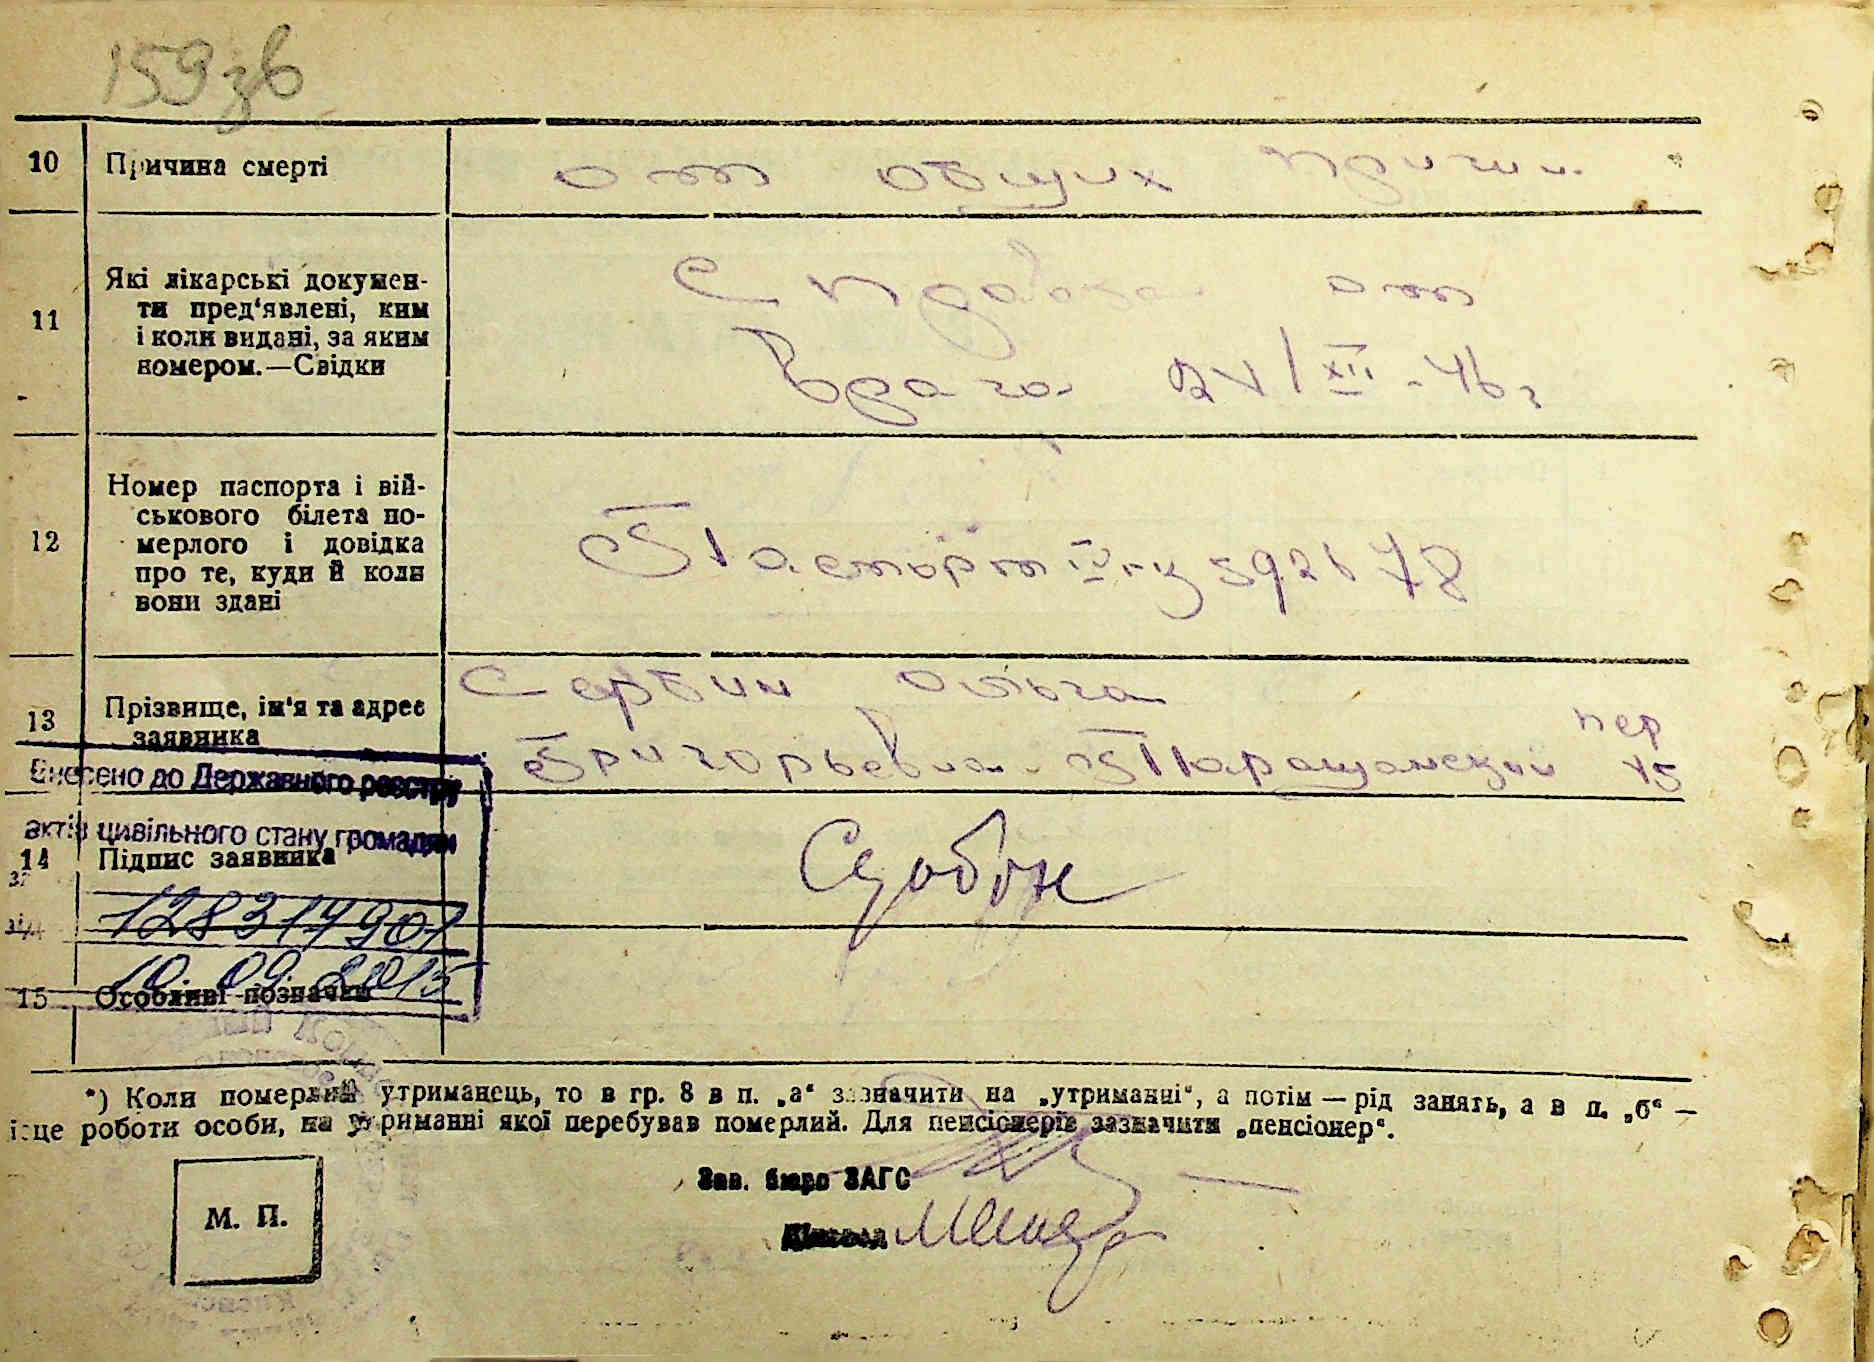 159зв
10 Причина смерті от общих причин
Які лікарські докумен-
ти пред'явлені, ким
11 і коли видані, за яким
номером.—Свідки
Справка от
врача 21/XII-46г
Номер паспорта і вій-
ськового білета по-
12 мерлого і довідка
про те, куди й коли
вони здані
Паспорт IV 592678
13 Прізвище, ім'я та адрес
заявника
Сербин Ольга
Григорьевна пер 15
Внесено до Державного реєстру
актів цивільного стану громадян
14 Підпис заявника
128314901
10.09.2015
15 Особливі позначки
*) Коли померлий утриманець, то в гр. 8 в п. „а“ зазначити на „утриманні“, а потім — рід занять, а в п. „б“ —
місце роботи особи, на утриманні якої перебував померлий. Для пенсіонерів зазначити „пенсіонер“.
Зав. бюро ЗАГС
М. П.